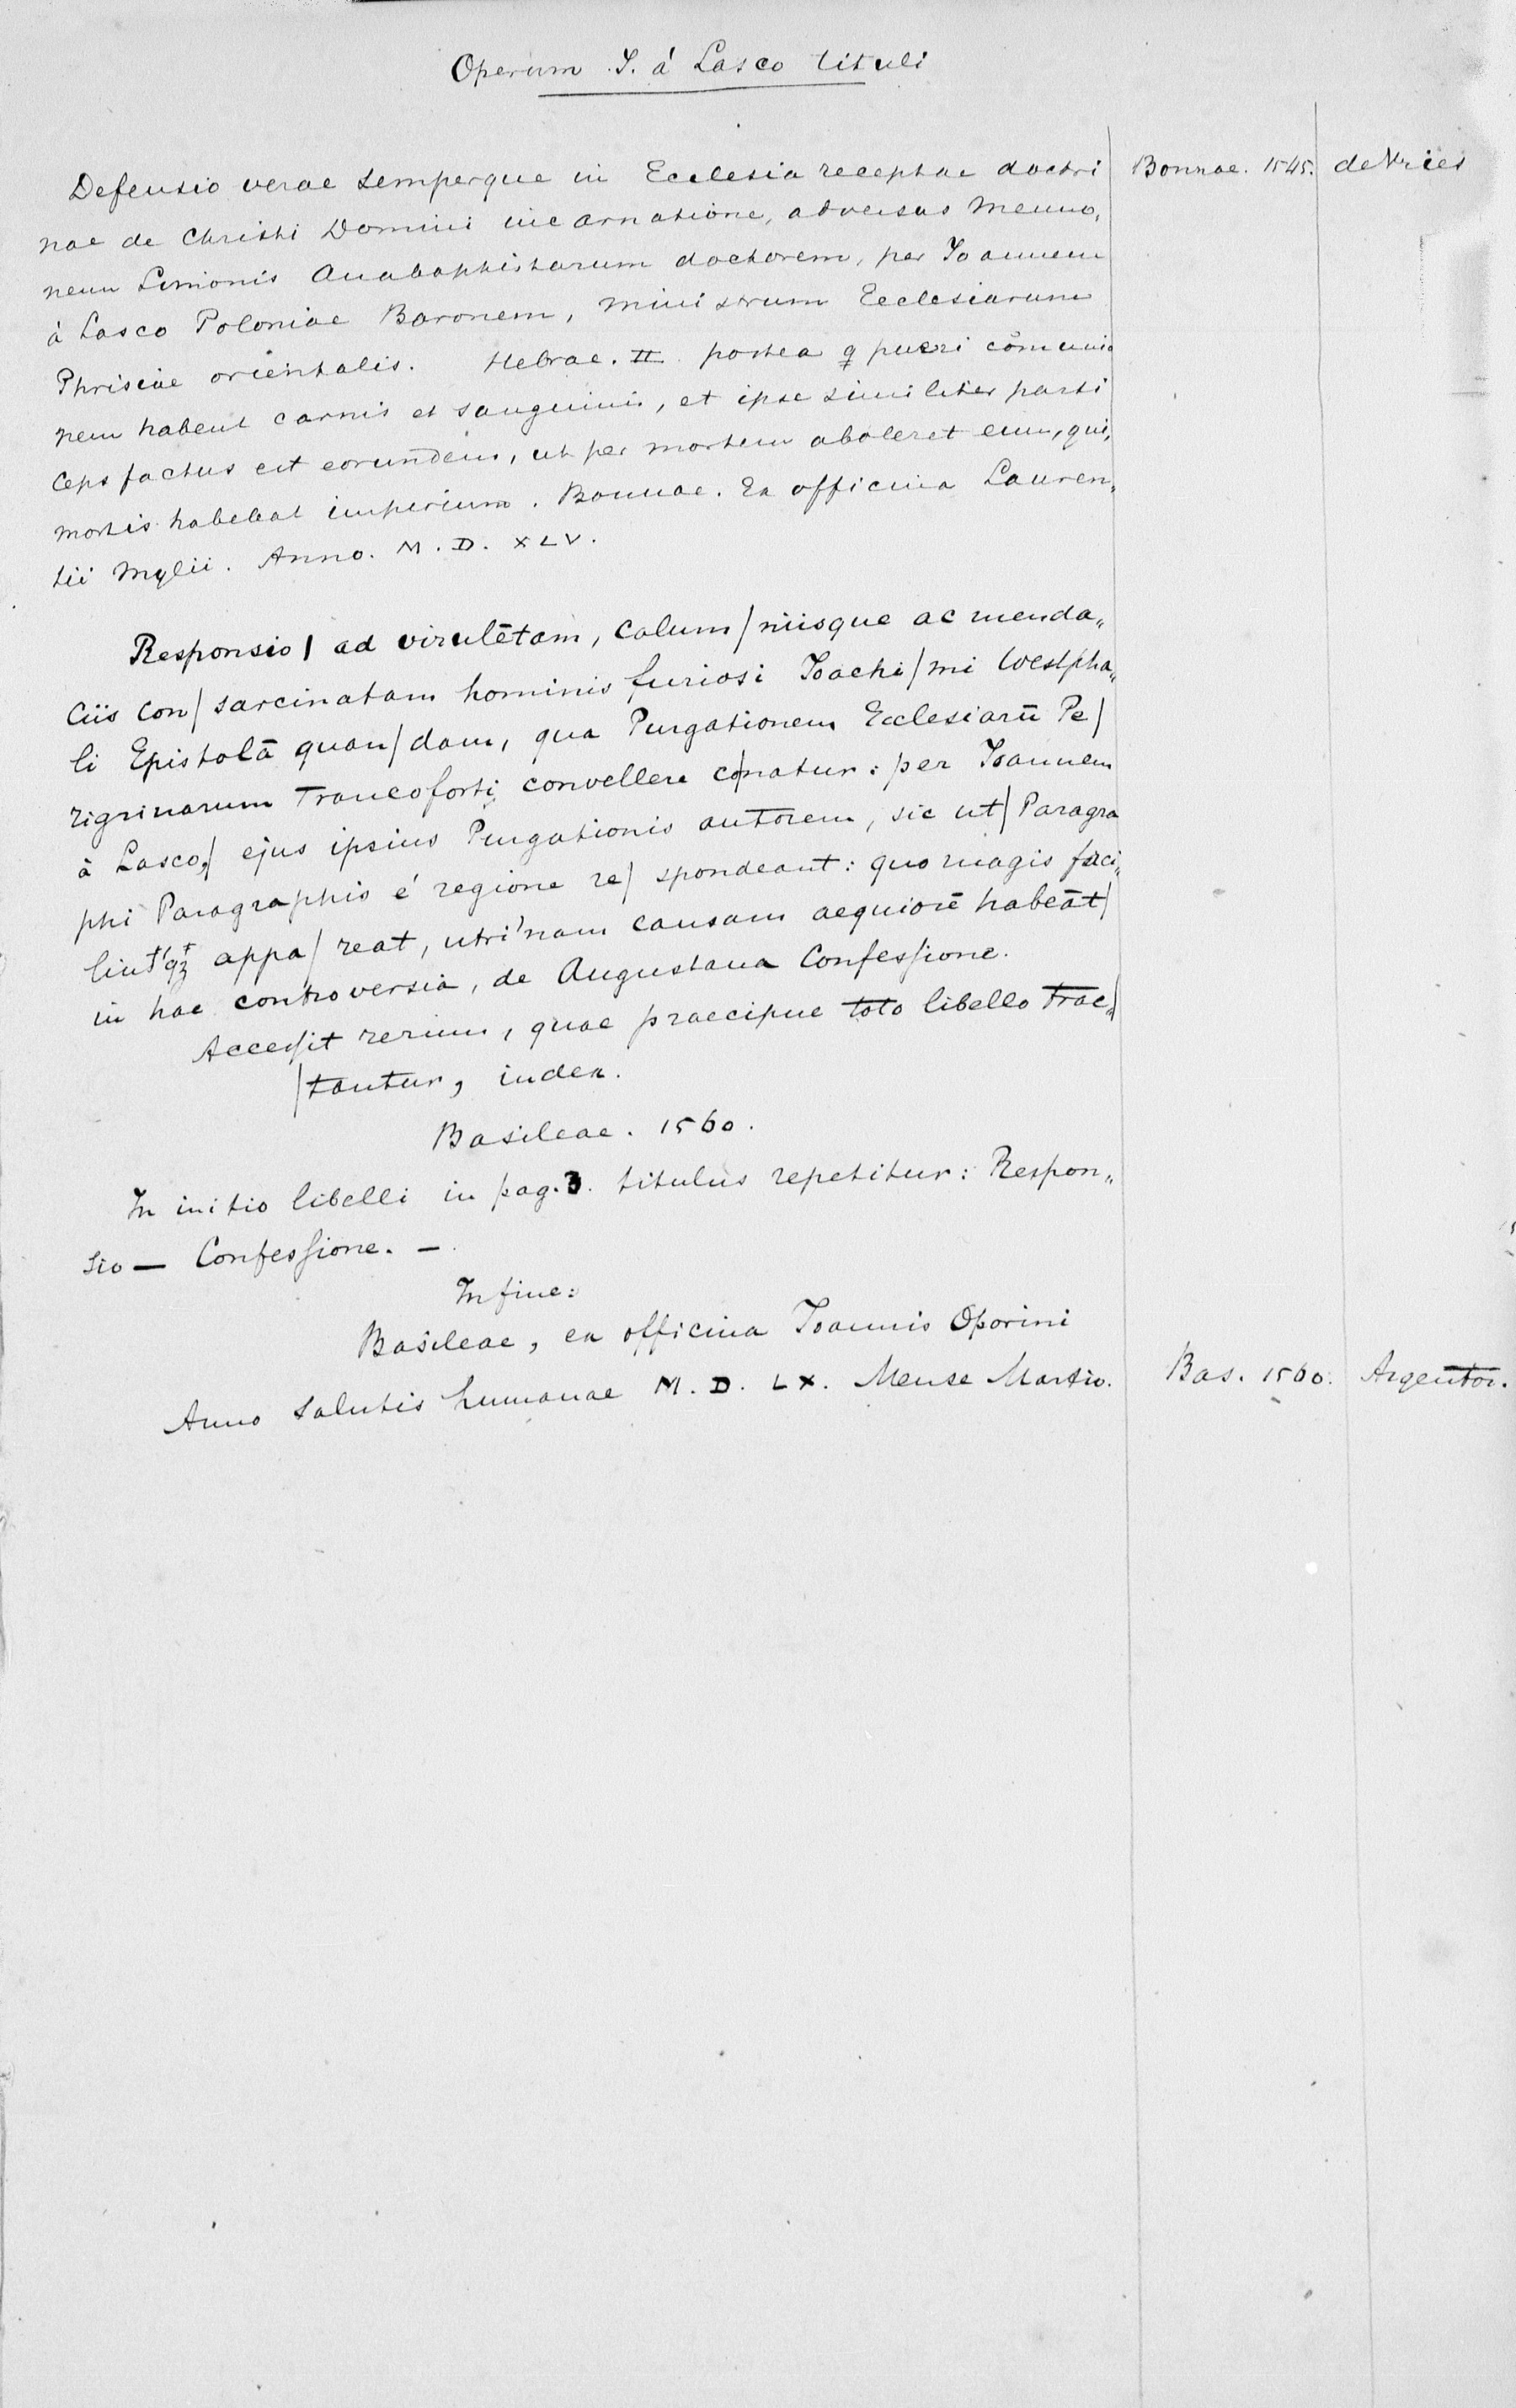 Operum J. á Lasco tituli
Defensio verae semperque in Ecclesia receptae doctri Bonnae. 1545. de Vries
nae de Christi Domini incarnatione, adversus Menno„
nem Simonis Anabaptistarum doctorem, per Joannem
à Lasco Poloniae Baronem, ministrum Ecclesiarum
Phrisiae orientalis. Hebrae. II postea q pueri cõmunio
nem habent carnis et sanguinis, et ipse similiter parti
ceps factus est eorundem, ut per mortem aboleret eum, qui„
mortis habebat imperium. Bonnae. Ex officina Lauren„
tii Mylii. Anno. M. D. XLV.
Responsio / ad virulētam, calum/niisque ac menda„
ciis con/sarcinatam hominis furiosi Joachi/mi Westpha„
li Epistolā quan/dam, qua Purgationem Ecclesiarū Pe/
rigrinarum Francoforti convellere conatur: per Joannem
à Lasco,/ ejus ipsius Purgationis autorem, sic ut/ Paragra
phi Paragraphis é regione re/spondeant: quo magis faci„
appa/reat, utri'nam causam aequiorē habeāt/
in hac controversia, de Augustana Confessione.
Accessit rerum, quae praecipue toto libello trac„/
/tantur, index.
Basileae. 1560.
In initio libelli in pag. 3. titulus repetitur: Respon„
sio — Confessione. —.
In fine:
Basileae, ex officina Joannis Oporini
Anno salutis humanae M. D. LX. Mense Martio. Bas. 1560. Argentor.